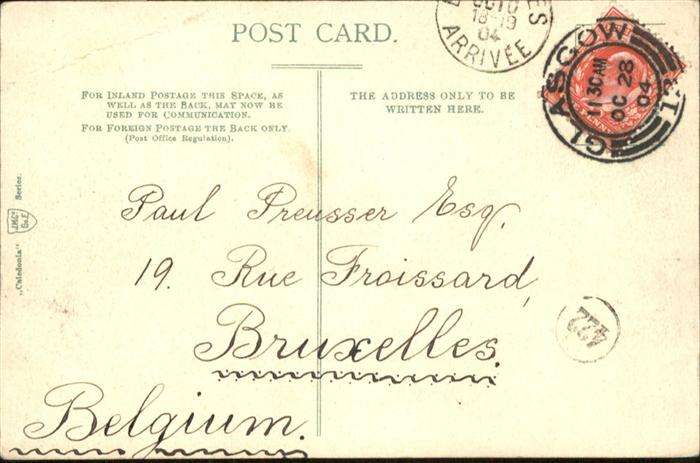 POST CARD.
OCTO
18-19
04
ARRIVÉE
GLASGOW
11 30 AM
OC 28
04
FOR INLAND POSTAGE THIS SPACE, AS
WELL AS THE BACK, MAY NOW BE
USED FOR COMMUNICATION.
FOR FOREIGN POSTAGE THE BACK ONLY.
(Post Office Regulation).
THE ADDRESS ONLY TO BE
WRITTEN HERE.
Paul Preusser Esq.
19. Rue Froissard,
Bruxelles.
Belgium.
422
"Caledonia" Series.